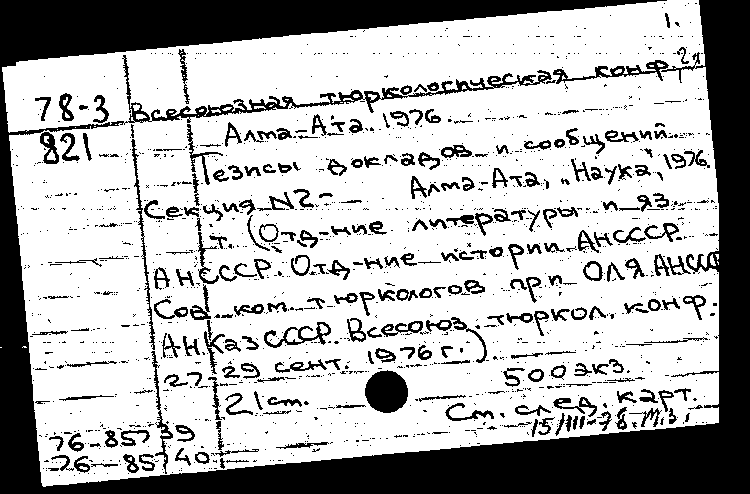 1.
78-3 Всесоюзная тюркологическая конф. 2я
821 Алма-Ата. 1976.
Тезисы докладов и сообщений
Секция №2- Алма-Ата, "Наука", 1976.
т. (Отд-ние литературы и яз.
АНСССР. Отд-ние истории АНСССР.
Сов. ком. тюркологов при ОЛЯ АНССС
АН.КазСССР. Всесоюз. тюркол. конф.
27-29 сент. 1976 г.)
21 ст. 500 экз.
См. след. карт.
15/III-78. М.З.
76-85739
76-85740